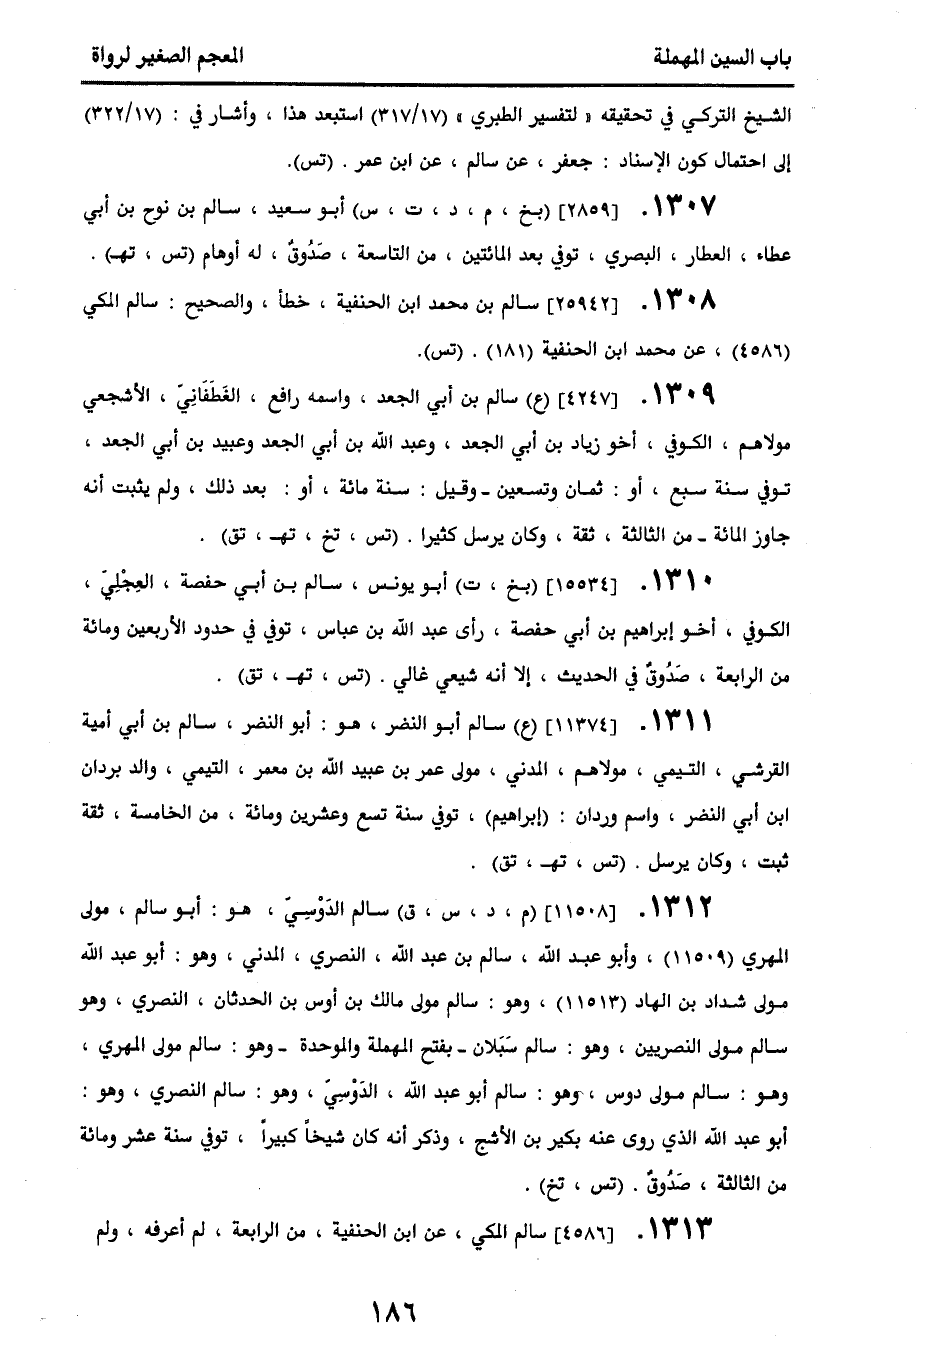 باب السين المهملة
المعجم الصغير لرواة
الشيخ التركي في تحقيقه « لتفسير الطبري » (٣١٧/١٧) استبعد هذا ، وأشار في : (٣٢٢/١٧)
إلى احتمال كون الإسناد : جعفر ، عن سالم ، عن ابن عمر . (تس).
١٣٠٧. [٢٨٥٩] (بخ ، م ، د ، ت ، س) أبو سعيد ، سالم بن نوح بن أبي
عطاء ، العطار ، البصري ، توفي بعد المائتين ، من التاسعة ، صَدُوقٌ ، له أوهام (تس ، تهـ) .
١٣٠٨. [٢٥٩٤٢] سالم بن محمد ابن الحنفية ، خطأ ، والصحيح : سالم المكي
(٤٥٨٦) ، عن محمد ابن الحنفية (١٨١) . (تس).
١٣٠٩. [٤٢٤٧] (ع) سالم بن أبي الجعد ، واسمه رافع ، الغَطَفَانِيّ ، الأشجعي
مولاهم ، الكوفي ، أخو زياد بن أبي الجعد ، وعبد الله بن أبي الجعد وعبيد بن أبي الجعد ،
توفي سنة سبع ، أو : ثمان وتسعين ـ وقيل : سنة مائة ، أو : بعد ذلك ، ولم يثبت أنه
جاوز المائة ـ من الثالثة ، ثقة ، وكان يرسل كثيرا . (تس ، تخ ، تهـ ، تق) .
١٣١٠. [١٥٥٣٤] (بخ ، ت) أبو يونس ، سالم بن أبي حفصة ، العِجْلِيّ ،
الكوفي ، أخو إبراهيم بن أبي حفصة ، رأى عبد الله بن عباس ، توفي في حدود الأربعين ومائة
من الرابعة ، صَدُوقٌ في الحديث ، إلا أنه شيعي غالي . (تس ، تهـ ، تق) .
١٣١١. [١١٣٧٤] (ع) سالم أبو النضر ، هو : أبو النضر ، سالم بن أبي أمية
القرشي ، التيمي ، مولاهم ، المدني ، مولى عمر بن عبيد الله بن معمر ، التيمي ، والد بردان
ابن أبي النضر ، واسم وردان : (إبراهيم) ، توفي سنة تسع وعشرين ومائة ، من الخامسة ، ثقة
ثبت ، وكان يرسل . (تس ، تهـ ، تق) .
١٣١٢. [١١٥٠٨] (م ، د ، س ، ق) سالم الدَوْسِيّ ، هو : أبو سالم ، مولى
المهري (١١٥٠٩) ، وأبو عبد الله ، سالم بن عبد الله ، النصري ، المدني ، وهو : أبو عبد الله
مولى شداد بن الهاد (١١٥١٣) ، وهو : سالم مولى مالك بن أوس بن الحدثان ، النصري ، وهو
سالم مولى النصريين ، وهو : سالم سَبَلان ـ بفتح المهملة والموحدة ـ وهو : سالم مولى المهري ،
وهو : سالم مولى دوس ، وهو : سالم أبو عبد الله ، الدَوْسِيّ ، وهو : سالم النصري ، وهو :
أبو عبد الله الذي روى عنه بكير بن الأشج ، وذكر أنه كان شيخاً كبيراً ، توفي سنة عشر ومائة
من الثالثة ، صَدُوقٌ . (تس ، تخ) .
١٣١٣. [٤٥٨٦] سالم المكي ، عن ابن الحنفية ، من الرابعة ، لم أعرفه ، ولم
١٨٦